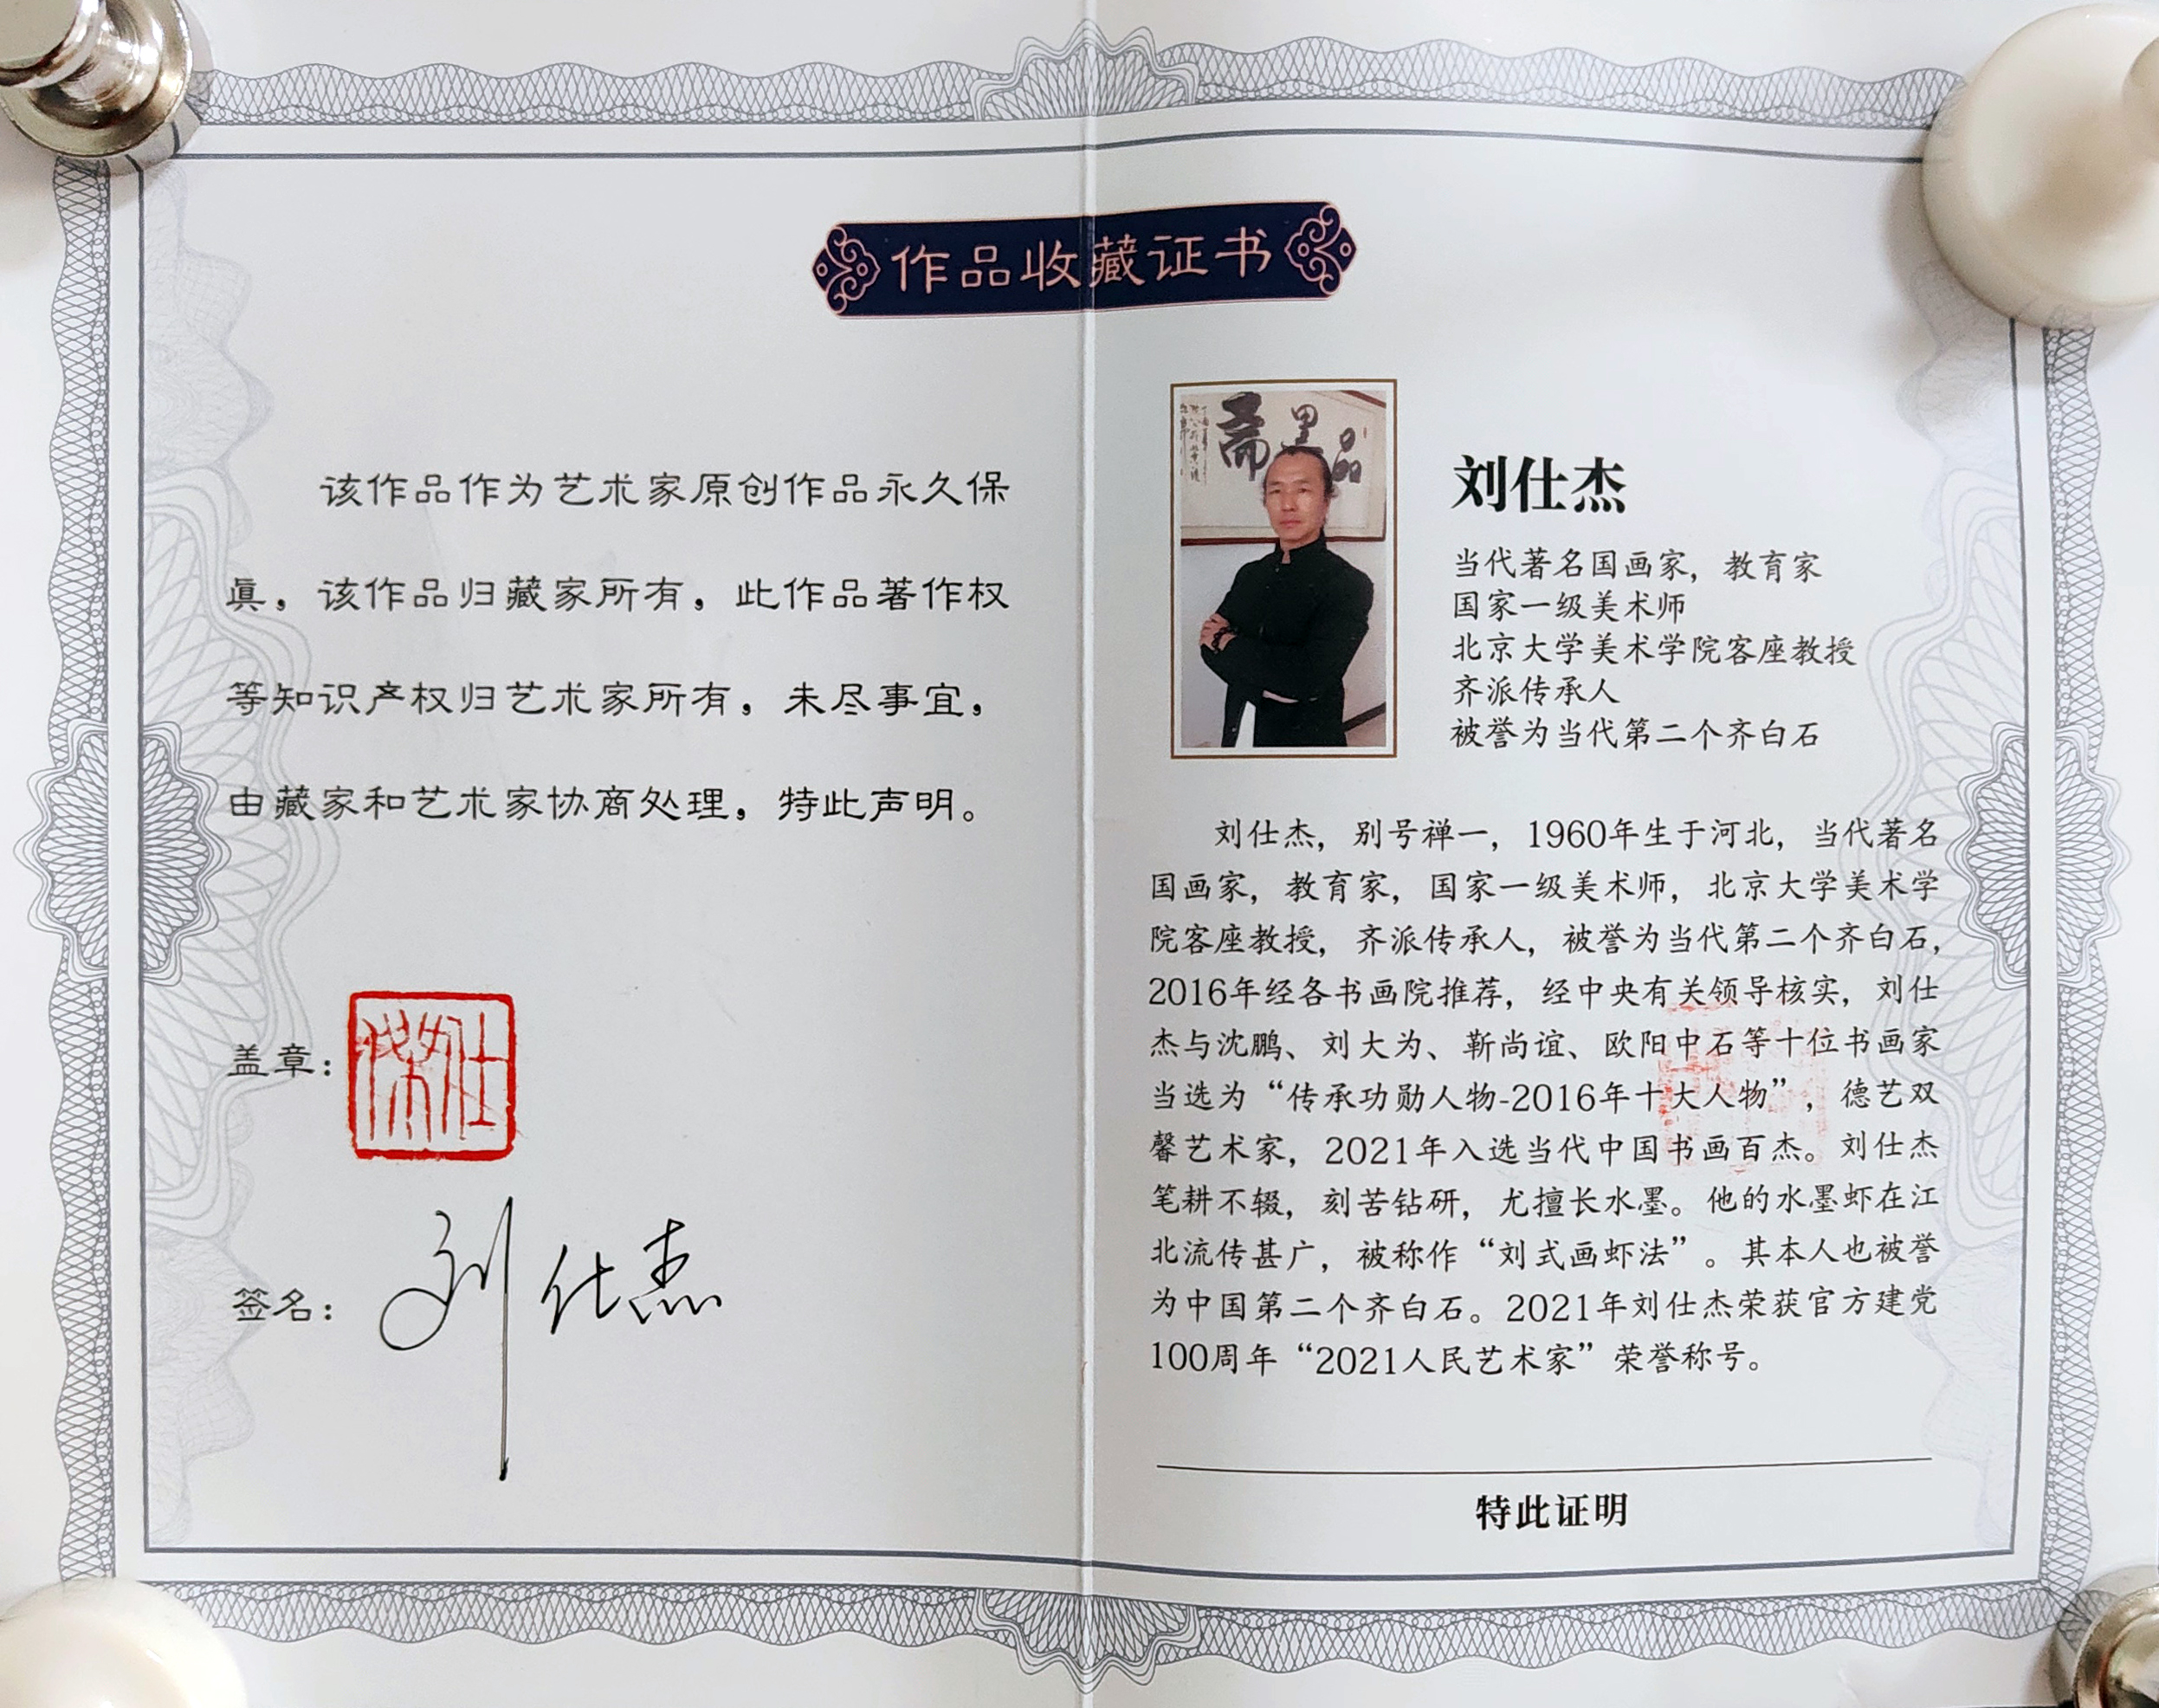 作品收藏证书
该作品作为艺术家原创作品永久保
眞，该作品归藏家所有，此作品著作权
等知识产权归艺术家所有，未尽事宜，
由藏家和艺术家协商处理，特此声明。
盖章：
签名：刘仕杰
斋墨品
刘仕杰
当代著名国画家，教育家
国家一级美术师
北京大学美术学院客座教授
齐派传承人
被誉为当代第二个齐白石
刘仕杰，别号禅一，1960年生于河北，当代著名
国画家，教育家，国家一级美术师，北京大学美术学
院客座教授，齐派传承人，被誉为当代第二个齐白石，
2016年经各书画院推荐，经中央有关领导核实，刘仕
杰与沈鹏、刘大为、靳尚谊、欧阳中石等十位书画家
当选为“传承功勋人物-2016年十大人物”，德艺双
馨艺术家，2021年入选当代中国书画百杰。刘仕杰
笔耕不辍，刻苦钻研，尤擅长水墨。他的水墨虾在江
北流传甚广，被称作“刘式画虾法”。其本人也被誉
为中国第二个齐白石。2021年刘仕杰荣获官方建党
100周年“2021人民艺术家”荣誉称号。
特此证明